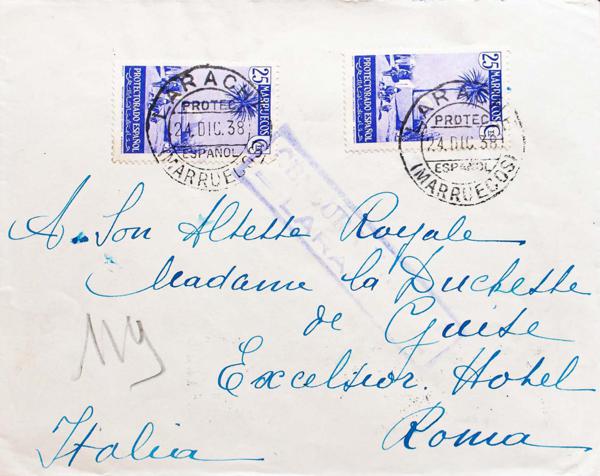 25 MARRUECOS
PROTECTORADO ESPAÑOL
25 MARRUECOS
PROTECTORADO ESPAÑOL
LARACHE
PROTEC
24.DIC.38
ESPAÑOL
(MARRUECOS)
LARACHE
PROTEC
24.DIC.38
ESPAÑOL
(MARRUECOS)
A Son Altesse Royale
Madame la Duchesse
de Guise
Excelsior Hotel
Roma
Italia
119